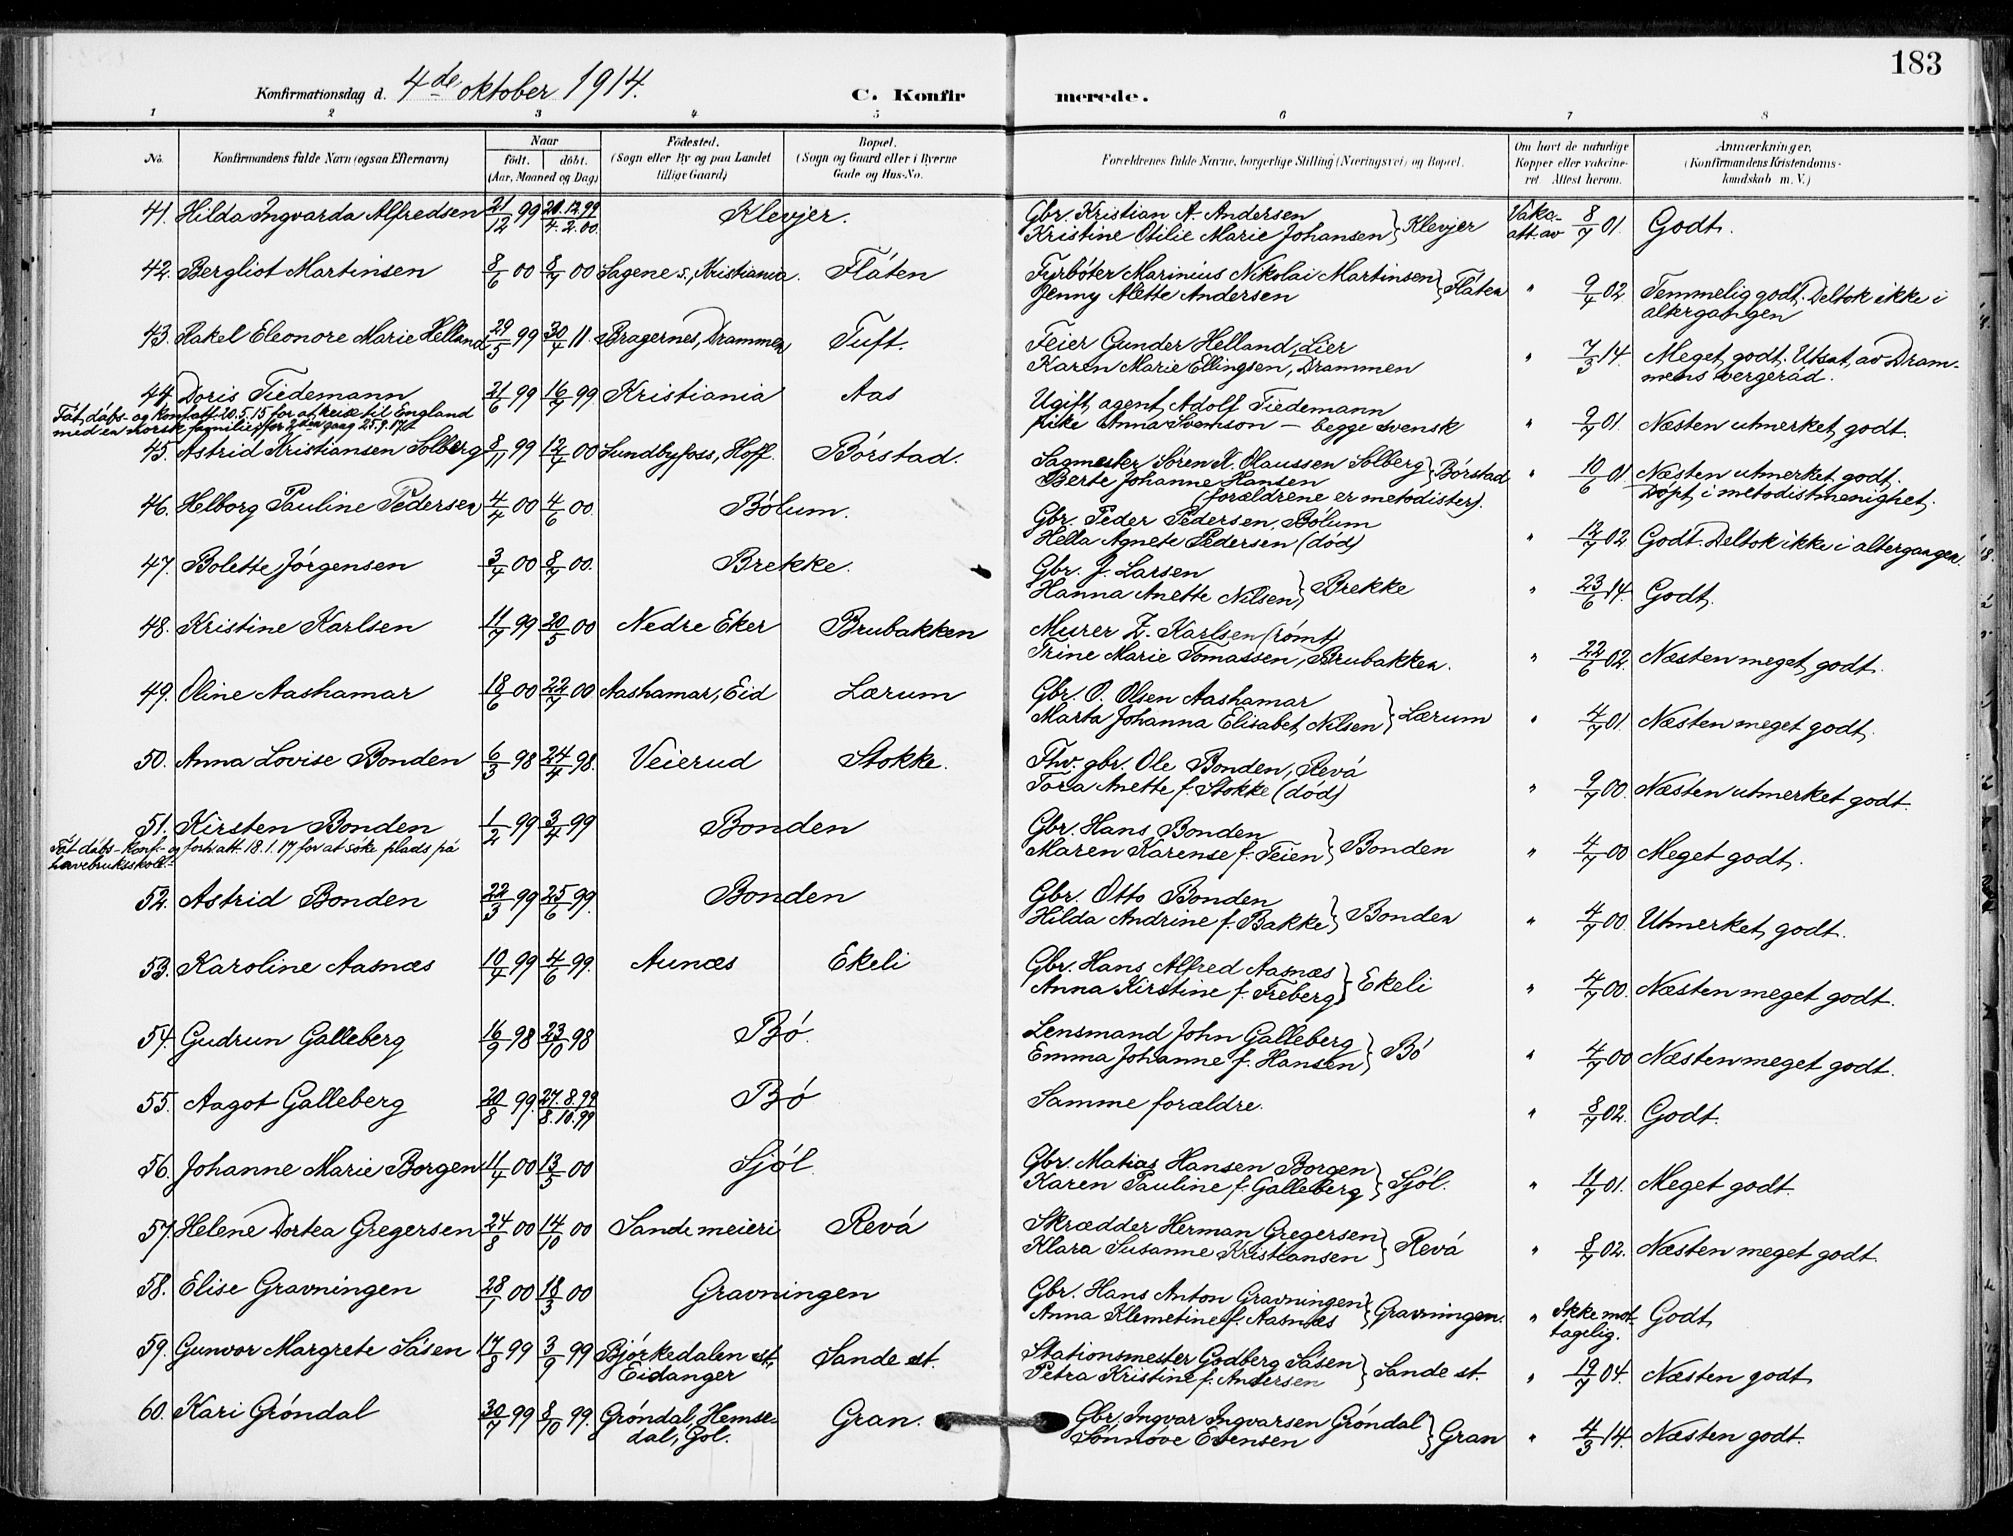 183
Konfirmationsdag d. 4de oktober 1914.
C. Konfir merede.
1 2 3 4 5 6 7 8
No. Konfirmandens fulde Navn (ogsaa Efternavn) Naar födt. döbt. (Aar, Maaned og Dag) Födested. (Sogn eller By og paa Landet tillige Gaard) Bopæl. (Sogn og Gaard eller i Byerne Gade og Hus-No. Forældrenes fulde Navne, borgerlige Stilling (Næringsvei) og Bopæl. Om havt de naturlige Kopper eller vakcineret. Attest herom. Anmærkninger, (Konfirmandens Kristendomskundskab m. V.)
41. Hilda Ingvarda Alfredsen 21/12 99 4.2.00. Klevjer. Gbr. Kristian A. Andersen
Kristine Otilie Marie Johansen } Klevjer Vakc. att. av 8/7 01. Godt.
42. Bergliot Martinsen 8/6 00 8/7 00 Sagene s., Kristiania. Flåten Fyrböter Marinius Nikolai Martinsen
Jenny Alette Andersen } Flåten " 9/7 02 Temmelig godt. Deltok ikke i
altergangen
43. Rakel Eleonore Marie Helland 29/5 99 30/4 11. Bragernes, Drammen Tuft. Feier Gunder Helland, Lier
Karen Marie Ellingsen, Drammen " 7/3 14. Meget godt. Utsat av Dram-
mens vergeråd.
44. Doris Tiedemann 21/6 99 16/7 99 Kristiania Aas Ugift agent Adolf Tiedemann
pike Anna Svenson - begge svensk " 9/7 01. Næsten utmerket godt.
Fåt dåbs- og konf.att. 20.5.15 for at reise til England
med en norsk familie; for 2den gang 25.9.17
45. Astrid Kristiansen Solberg 8/11 99 12/4 00 Sundbyfoss, Hoff. Börstad. Sagmester Sören K. Olaussen Solberg
Berte Johanne Hansen } Börstad " 10/6 01. Næsten utmerket godt.
(forældrene er metodister). Döpt i metodistmenighet.
46. Helborg Pauline Pedersen 4/4 00 4/6 00. Bölum. Gbr. Peder Pedersen, Bölum
Hella Agnete Pedersen (död) " 12/7 02 Godt. Deltok ikke i altergangen.
47. Bolette Jörgensen 3/4 00 8/7 00. Brekke. Gbr. J. Larsen
Hanna Anette Nilsen } Brekke " 23/6 14. Godt.
48. Kristine Karlsen 11/7 99 20/5 00 Nedre Eker Brubakken Murer Z. Karlsen (römt)
Trine Marie Tomassen, Brubakken. " 22/6 02. Næsten meget godt.
49. Oline Aashamar 18/6 00 22/7 00 Aashamar, Eid Lærum Gbr. O. Olsen Aashamar
Marta Johanna Elisabet Nilsen } Lærum " 4/7 01. Næsten meget godt.
50. Anna Lovise Bonden 6/3 98 24/4 98. Veierud Stokke. Fhv. gbr. Ole Bonden, Revå
Tora Anette f. Stokke (död) " 9/7 00. Næsten utmerket godt.
51. Kirsten Bonden 1/2 99 3/4 99 Bonden Gbr. Hans Bonden
Maren Karense f. Teien } Bonden " 4/7 00 Meget godt.
Fåt dåbs- konf.- og forh.att. 18.1.17 for at söke plads på
havebruksskole
52. Astrid Bonden 22/3 99 25/6 99. Bonden Gbr. Otto Bonden
Hilda Andrine f. Bakke } Bonden " 4/7 00. Utmerket godt.
53. Karoline Aasnæs 10/4 99 4/6 99. Aunæs Ekeli Gbr. Hans Alfred Aasnæs
Anna Kirstine f. Freberg } Ekeli " 4/7 00. Næsten meget godt.
54. Gudrun Galleberg 16/9 98 23/10 98 Bö. Lensmand John Galleberg
Emma Johanne f. Hansen } Bö " 4/7 00 Næsten meget godt.
55. Aagot Galleberg 20/8 99. 27.8.99 8.10.99 Bö Samme forældre. " 8/7 02. Godt.
56. Johanne Marie Borgen 11/4 00 13/5 00 Sjöl. Gbr. Matias Hansen Borgen
Karen Pauline f. Galleberg } Sjöl. " 4/7 01. Meget godt.
57. Helene Dortea Gregersen 24/8 00 14/10 00 Sande meieri Revå Skrædder Herman Gregersen
Klara Susanne Kristiansen } Revå " 8/7 02. Næsten meget godt.
58. Elise Gravningen 28/1 00 18/3 00 Gravningen Gbr. Hans Anton Gravningen
Anna Klemetine f. Aasnæs } Gravningen. " Ikke mot-
tagelig. Godt
59. Gunvor Margrete Såsen 17/8 99 3/9 99 Björkedalen st.,
Eidanger Sande st. Stationsmester Godberg Såsen
Petra Kristine f. Andersen } Sande st. " 19/7 04. Næsten godt
60. Kari Gröndal 30/7 99 8/10 99. Gröndal, Hemse-
dal, Gol. Gran. Gbr. Ingvar Ingvarsen Gröndal
Sönnöve Evensen } Gran " 4/3 14. Næsten godt.